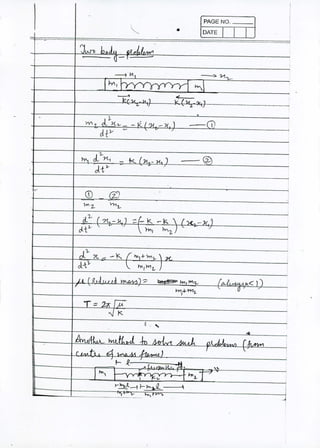 PAGE NO.
DATE
Two body problem
→ x₁ → x₂
m₁ m₂
K(x₂-x₁) K(x₂-x₁)
m₂ d²x₂/dt² = -K(x₂-x₁) — ①
m₁ d²x₁/dt² = K(x₂-x₁) — ②
①/m₂ - ②/m₁
d²/dt² (x₂-x₁) = (-K/m₁ - K/m₂)(x₂-x₁)
d²x/dt² = -K (m₁+m₂/m₁m₂) x
μ (Reduced mass) = m₁m₂/m₁+m₂ (always < 1)
T = 2π √μ/K
Another method to solve such problems (from
centre of mass frame)
l
m₁ K₂ m₂ → v
m₂l/m₁+m₂ m₁l/m₁+m₂